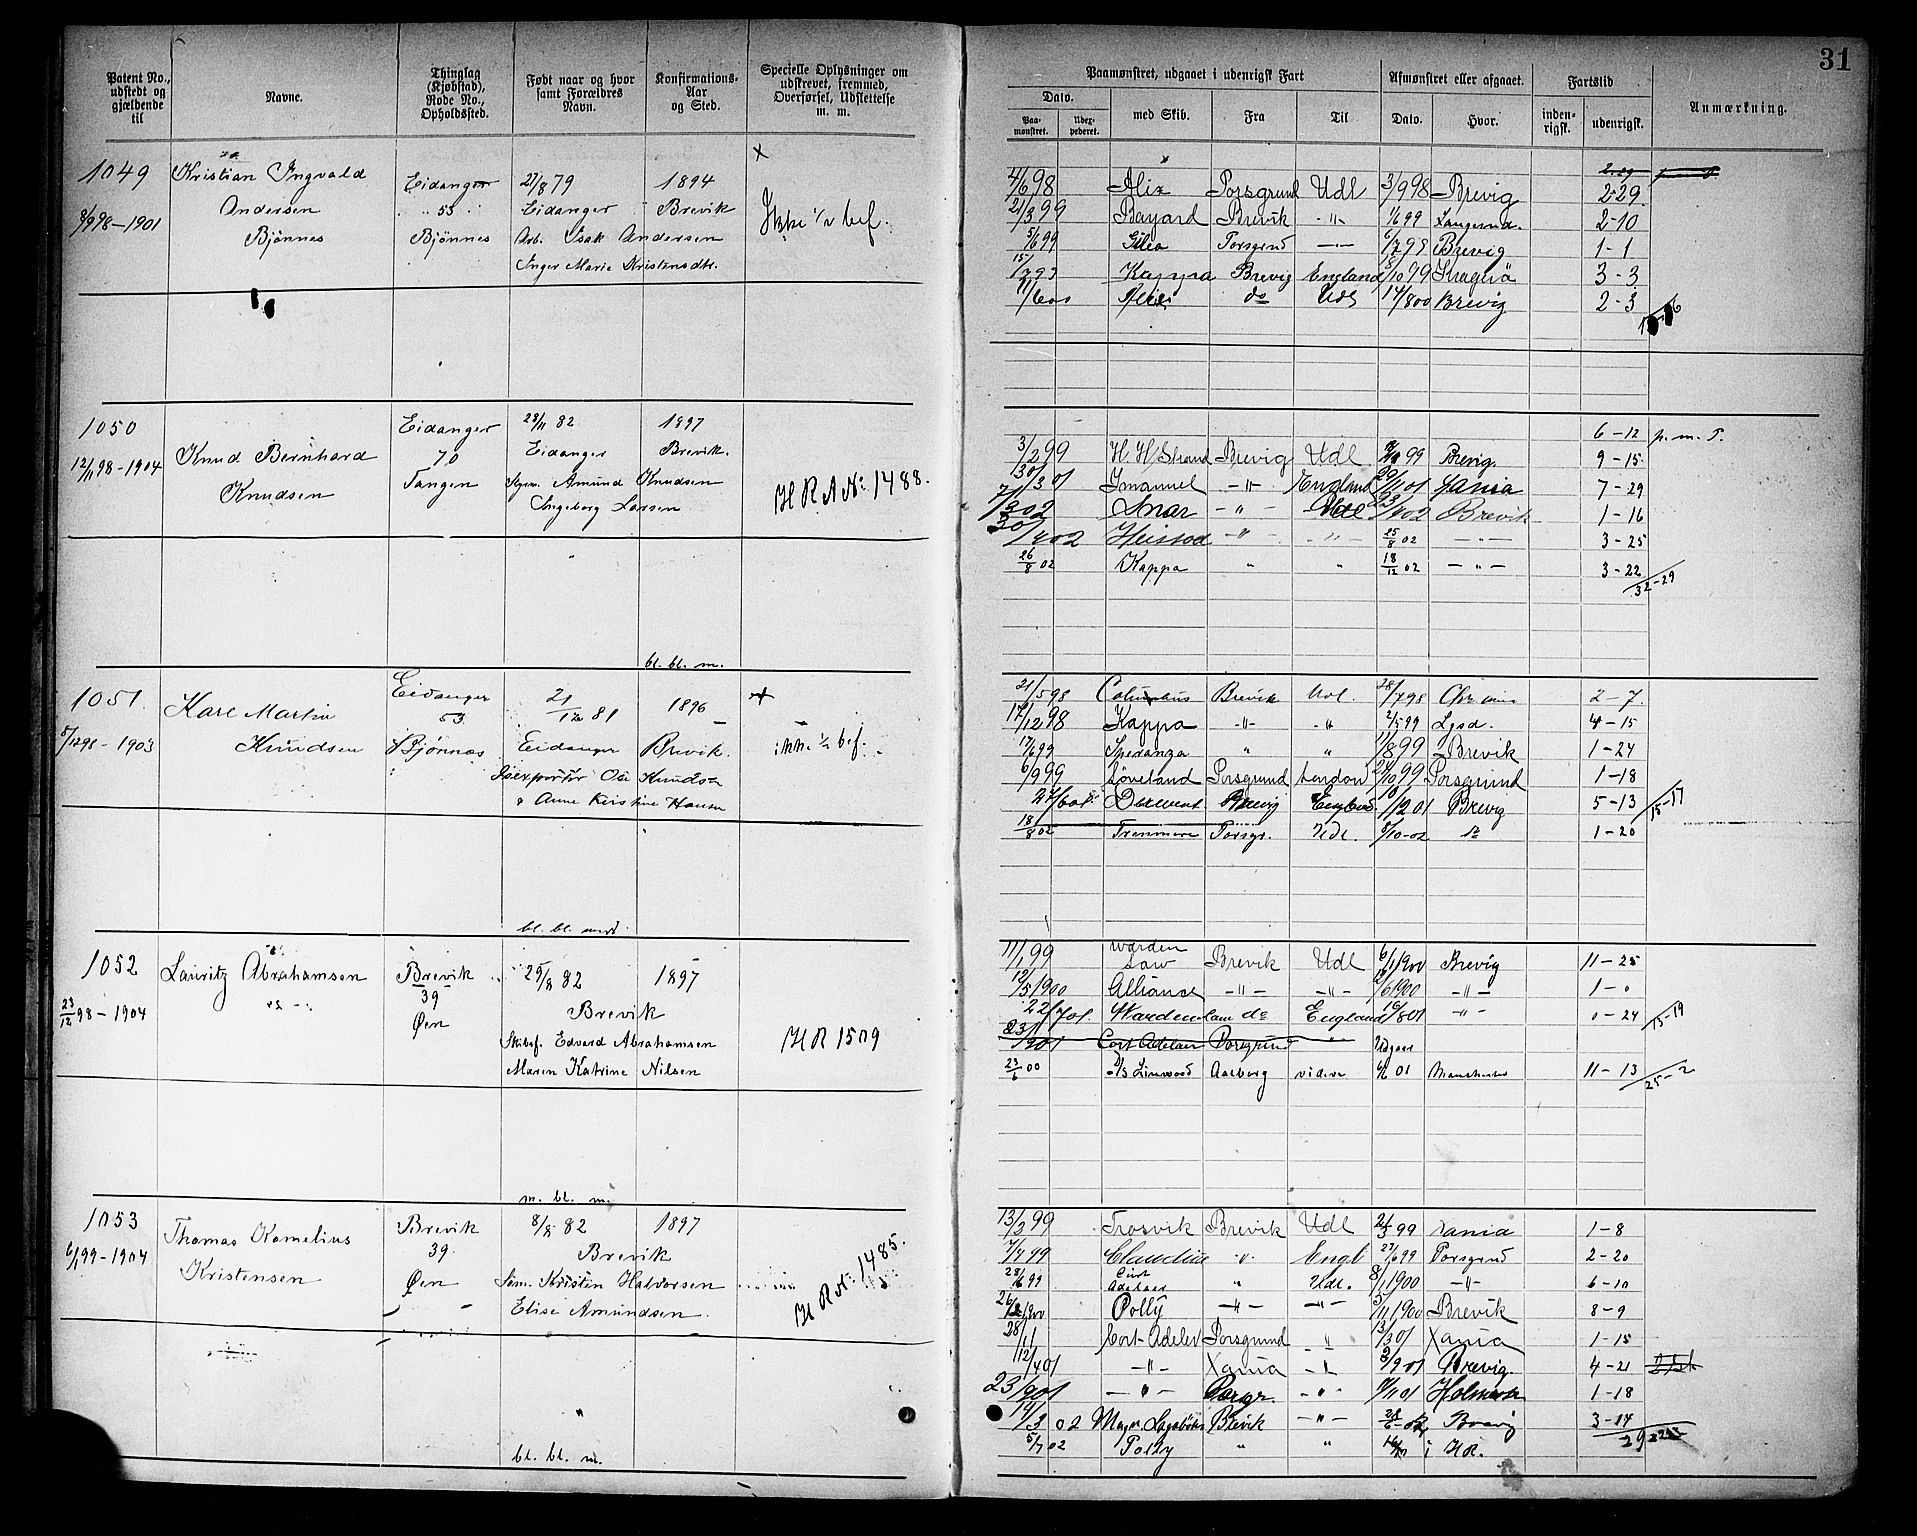 31
Patent No., udstedt og gjældende til
Navne.
Thinglag (Kjøbstad), Rode No., Opholdssted.
Født naar og hvor samt Forældres Navn.
Konfirmations-Aar og Sted.
Specielle Oplysninger om udskrevet, fremmed, Overførsel, Udslettelse m. m.
Paamønstret, udgaaet i udenrigsk Fart
Dato.
Paa-mønstret.
Udex-pederet.
med Skib.
Fra
Til
Afmønstret eller afgaaet.
Dato.
Hvor.
Fartstid
inden-rigsk.
udenrigsk.
Anmærkning.
1049
8/9 98-1901
Kristian Ingvald
Andersen
Bjønnes
Eidanger
53
Bjønnes
27/8 79
Eidanger
Arb. Isak Andersen
Inger Marie Kristensdtr.
1894
Brevik
Ikke 1/2 bef.
4/6 98 Alix Porsgrund Udl 3/9 98 Brevig 2-29.
21/3 99 Bayard Brevik -"- 1/6 99 Langesund. 2-10
5/6 99 Porsgrnd -"- Brevig 1-1
Kappa Brevig England 8/10 99 Kragerø 3-3
11/6 00 do Udl 14/8 00 Brevig 2-3
1050
12/1 98-1904
Knud Bernhard
Knudsen
Eidanger
70
Tangen
28/11 82
Eidanger
Amund Knudsen
Ingeborg Larsen
1897
Brevik.
H R A No: 1488.
6-12 p. m. T.
3/2 99 H. H. Strand Brevig Udl. Brevig. 9-15
30/3 01 Imanuel -"- England 29/11 01 Xania 7-29
7/3 02 Snar -"- Udl Brevik 1-16
30/4 02 Heistad -"- -"- 25/8 02 -"- 3-25
26/8 02 Kappa " " 18/12 02 -"- 3-22
32-29
bl. bl. m.
1051.
5/12 98-1903
Karl Martin
Knudsen
Eidanger
53
Bjønnes
21/12 81
Eidanger
Isexportør Ole Knudsen
& Anne Kirstine Hansen
1896
Brevik.
ikke 1/2 bef.
21/5 98 Columbus Brevik Udl. 28/7 98 2-7.
17/12 98 Kappa -"- " 2/5 99 Lgsd. 4-15
17/6 99 Speranza " " 11/8 99 Brevik 1-24
6/9 99 Løveland Porsgrund London 24/10 99 Porsgrund 1-18
27/6 01. Derwent Brevig England. 10/12 01 Brevig 5-13
15-17
18/8 02 Porsgr. Udl. 8/10-02 do 1-20
bl. bl. med
1052
23/12 98-1904
Lauritz Abrahamsen
Brevik
39
Øen
29/8 82
Brevik
Skibsf. Edvard Abrahamsen
Maren Katrine Nilsen
1897
H R 1509
11/1 99 Warden Law Brevik Udl 6/1 1900 Brevig 11-25
12/5 1900 Alliance -"- -"- 12/6 1900 -"- 1-0
22/7 01. Wardenlaw do England 16/8 01 -"- 0-24
13-19
23/9 01 Cort Adelaer Porsgrund " Udgaar
23/6 00 Linwood Aalborg videre 6/6 01 Manchester 11-13
25-2
m. bl. m.
1053
6/1 99-1904
Thomas Kornelius
Kristensen
Brevik
39.
Øen
8/8 82
Brevik
Søm. Kristen Halvorsen
Elise Amundsen
1897
H R No: 1485.
13/3 99 Trosvik Brevik Udl 21/3 99 Xania 1-8
7/4 99 Claudine -"- Engl 27/6 99 Porsgrnd 2-20
28/6 99 Cort Adelaer " Udl. 8/1 1900 -"- 6-10
26/2 1900 Polly -"- -"- 5/11 1900 Brevik 8-9
28/11 Cort Adeler Porsgrund " 13/3 01 Xania 1-15
12/4 01 -"- Xania -"- 3/9 01 Brevig. 4-21
23/9 01 -"- Porsgr. -"- 11/11 01 1-18
14/3 02 Brevik -"- 28/6-02 Brevig 3-14
5/7 02 Polly " " i H R.
bl. bl. m.